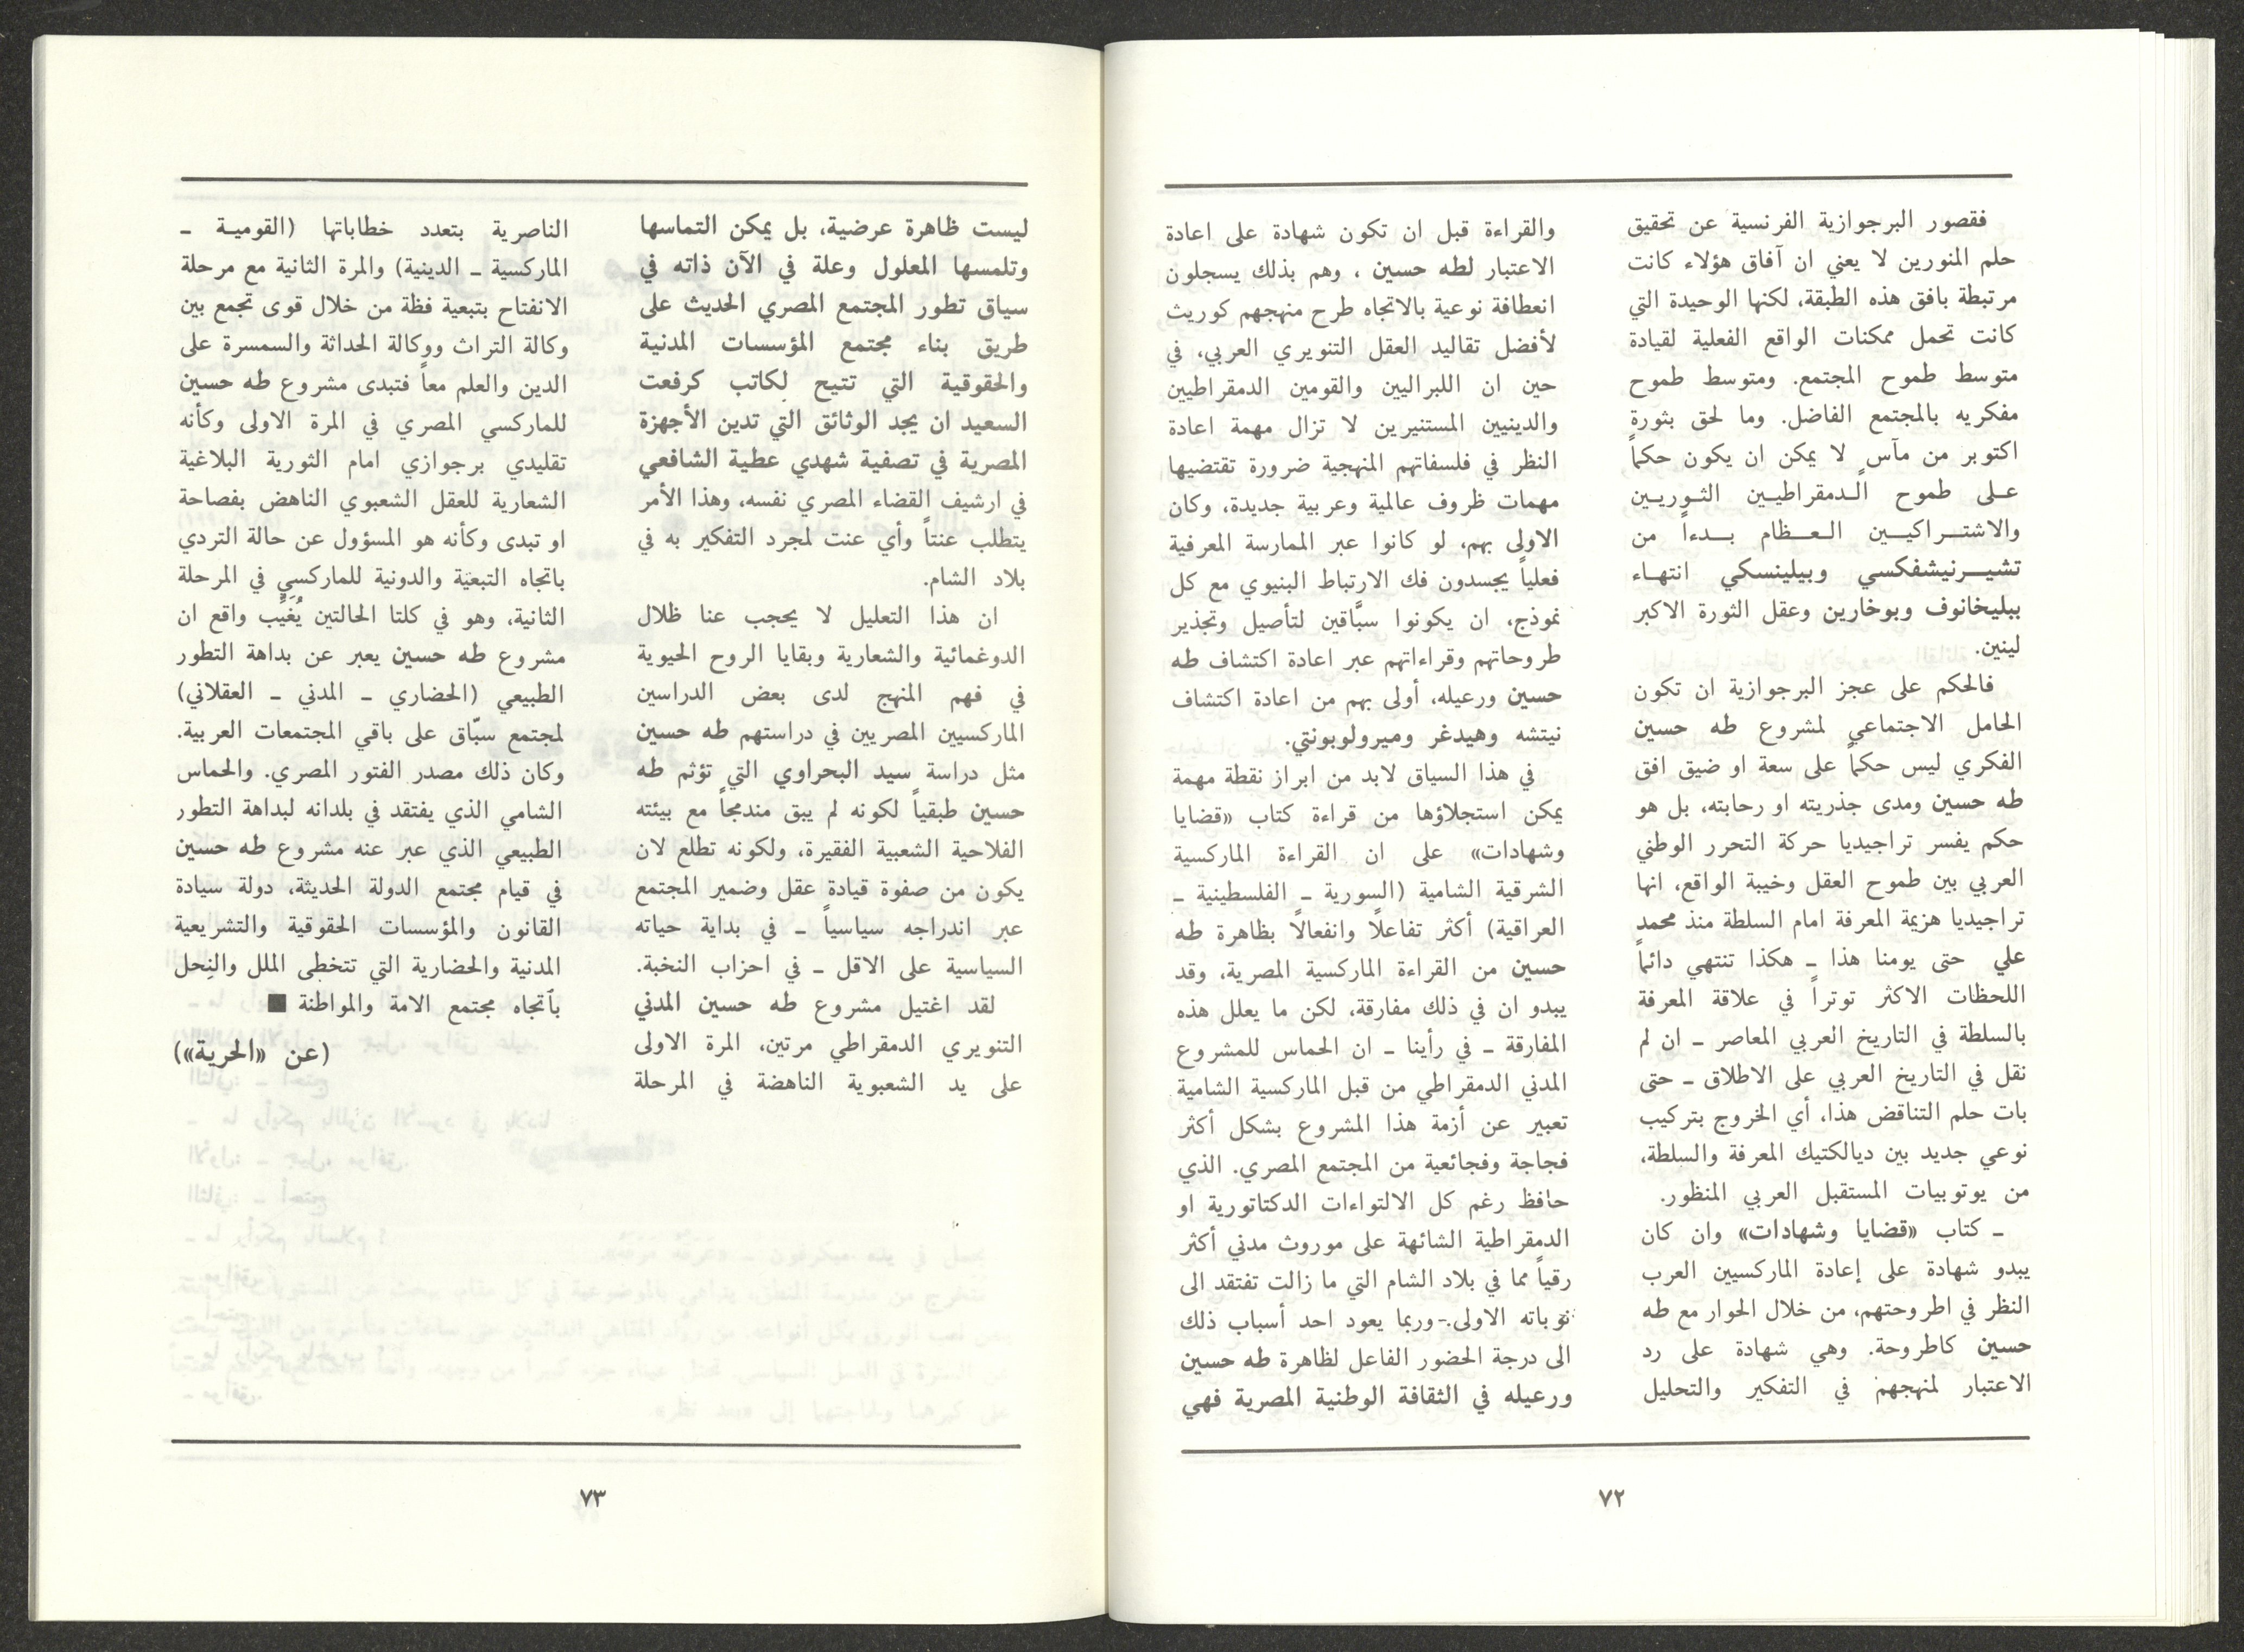 فقصور البرجوازية الفرنسية عن تحقيق
حلم المنورين لا يعني ان آفاق هؤلاء كانت
مرتبطة بافق هذه الطبقة، لكنها الوحيدة التي
كانت تحمل ممكنات الواقع الفعلية لقيادة
متوسط طموح المجتمع. ومتوسط طموح
مفكريه بالمجتمع الفاضل. وما لحق بثورة
اكتوبر من مآسٍ لا يمكن ان يكون حكماً
على طموح الدمقراطيين الثوريين
والاشتراكيين العظام بدءاً من
تشيرنيشفكسي وبيلينسكي انتهاء
ببليخانوف وبوخارين وعقل الثورة الاكبر
لينين.
فالحكم على عجز البرجوازية ان تكون
الحامل الاجتماعي لمشروع طه حسين
الفكري ليس حكماً على سعة او ضيق افق
طه حسين ومدى جذريته او رحابته، بل هو
حكم يفسر تراجيديا حركة التحرر الوطني
العربي بين طموح العقل وخيبة الواقع، انها
تراجيديا هزيمة المعرفة امام السلطة منذ محمد
علي حتى يومنا هذا ـ هكذا تنتهي دائماً
اللحظات الاكثر توتراً في علاقة المعرفة
بالسلطة في التاريخ العربي المعاصر ـ ان لم
نقل في التاريخ العربي على الاطلاق ـ حتى
بات حلم التناقض هذا، أي الخروج بتركيب
نوعي جديد بين ديالكتيك المعرفة والسلطة،
من يوتوبيات المستقبل العربي المنظور.
ـ كتاب «قضايا وشهادات» وان كان
يبدو شهادة على إعادة الماركسيين العرب
النظر في اطروحتهم، من خلال الحوار مع طه
حسين كاطروحة. وهي شهادة على رد
الاعتبار لمنهجهم في التفكير والتحليل
والقراءة قبل ان تكون شهادة على اعادة
الاعتبار لطه حسين ، وهم بذلك يسجلون
انعطافة نوعية بالاتجاه طرح منهجهم كوريث
لأفضل تقاليد العقل التنويري العربي، في
حين ان اللبراليين والقومين الدمقراطيين
والدينيين المستنيرين لا تزال مهمة اعادة
النظر في فلسفاتهم المنهجية ضرورة تقتضيها
مهمات ظروف عالمية وعربية جديدة، وكان
الاولى بهم، لو كانوا عبر الممارسة المعرفية
فعلياً يجسدون فك الارتباط البنيوي مع كل
نموذج، ان يكونوا سبَّاقين لتأصيل وتجذير
طروحاتهم وقراءاتهم عبر اعادة اكتشاف طه
حسين ورعيله، أولى بهم من اعادة اكتشاف
نيتشه وهيدغر وميرولوبونتي.
في هذا السياق لابد من ابراز نقطة مهمة
يمكن استجلاؤها من قراءة كتاب «قضايا
وشهادات» على ان القراءة الماركسية
الشرقية الشامية (السورية ـ الفلسطينية ـ
العراقية) أكثر تفاعلاً وانفعالاً بظاهرة طه
حسين من القراءة الماركسية المصرية، وقد
يبدو ان في ذلك مفارقة، لكن ما يعلل هذه
المفارقة ـ في رأينا ـ ان الحماس للمشروع
المدني الدمقراطي من قبل الماركسية الشامية
تعبير عن أزمة هذا المشروع بشكل أكثر
فجاجة وفجائعية من المجتمع المصري. الذي
حافظ رغم كل الالتواءات الدكتاتورية او
الدمقراطية الشائهة على موروث مدني أكثر
رقياً مما في بلاد الشام التي ما زالت تفتقد الى
باته الاولى. وربما يعود احد أسباب ذلك
الى درجة الحضور الفاعل لظاهرة طه حسين
ورعيله في الثقافة الوطنية المصرية فهي
٧٢
ليست ظاهرة عرضية، بل يمكن التماسها
وتلمسها المعلول وعلة في الآن ذاته في
سياق تطور المجتمع المصري الحديث على
طريق بناء مجتمع المؤسسات المدنية
والحقوقية التي تتيح لكاتب كرفعت
السعيد ان يجد الوثائق التي تدين الأجهزة
المصرية في تصفية شهدي عطية الشافعي
في ارشيف القضاء المصري نفسه، وهذا الأمر
يتطلب عنتاً وأي عنت لمجرد التفكير به في
بلاد الشام.
ان هذا التعليل لا يحجب عنا ظلال
الدوغمائية والشعارية وبقايا الروح الحيوية
في فهم المنهج لدى بعض الدراسين
الماركسيين المصريين في دراستهم طه حسين
مثل دراسة سيد البحراوي التي تؤثم طه
حسين طبقياً لكونه لم يبق مندمجاً مع بيئته
الفلاحية الشعبية الفقيرة، ولكونه تطلع لان
يكون من صفوة قيادة عقل وضمير المجتمع
عبر اندراجه سياسياً ـ في بداية حياته
السياسية على الاقل ـ في احزاب النخبة.
لقد اغتيل مشروع طه حسين المدني
التنويري الدمقراطي مرتين، المرة الاولى
على يد الشعبوية الناهضة في المرحلة
الناصرية بتعدد خطاباتها (القومية ـ
الماركسية ـ الدينية) والمرة الثانية مع مرحلة
الانفتاح بتبعية فظة من خلال قوى تجمع بين
وكالة التراث ووكالة الحداثة والسمسرة على
الدين والعلم معاً فتبدى مشروع طه حسين
للماركسي المصري في المرة الاولى وكأنه
تقليدي برجوازي امام الثورية البلاغية
الشعارية للعقل الشعبوي الناهض بفصاحة
او تبدى وكأنه هو المسؤول عن حالة التردي
باتجاه التبعية والدونية للماركسي في المرحلة
الثانية، وهو في كلتا الحالتين يُغَيِّب واقع ان
مشروع طه حسين يعبر عن بداهة التطور
الطبيعي (الحضاري ـ المدني ـ العقلاني)
لمجتمع سبّاق على باقي المجتمعات العربية.
وكان ذلك مصدر الفتور المصري. والحماس
الشامي الذي يفتقد في بلدانه لبداهة التطور
الطبيعي الذي عبر عنه مشروع طه حسين
في قيام مجتمع الدولة الحديثة، دولة سيادة
القانون والمؤسسات الحقوقية والتشريعية
المدنية والحضارية التي تتخطى الملل والنِحل
بأتجاه مجتمع الامة والمواطنة ■
(عن «الحرية»)
٧٣